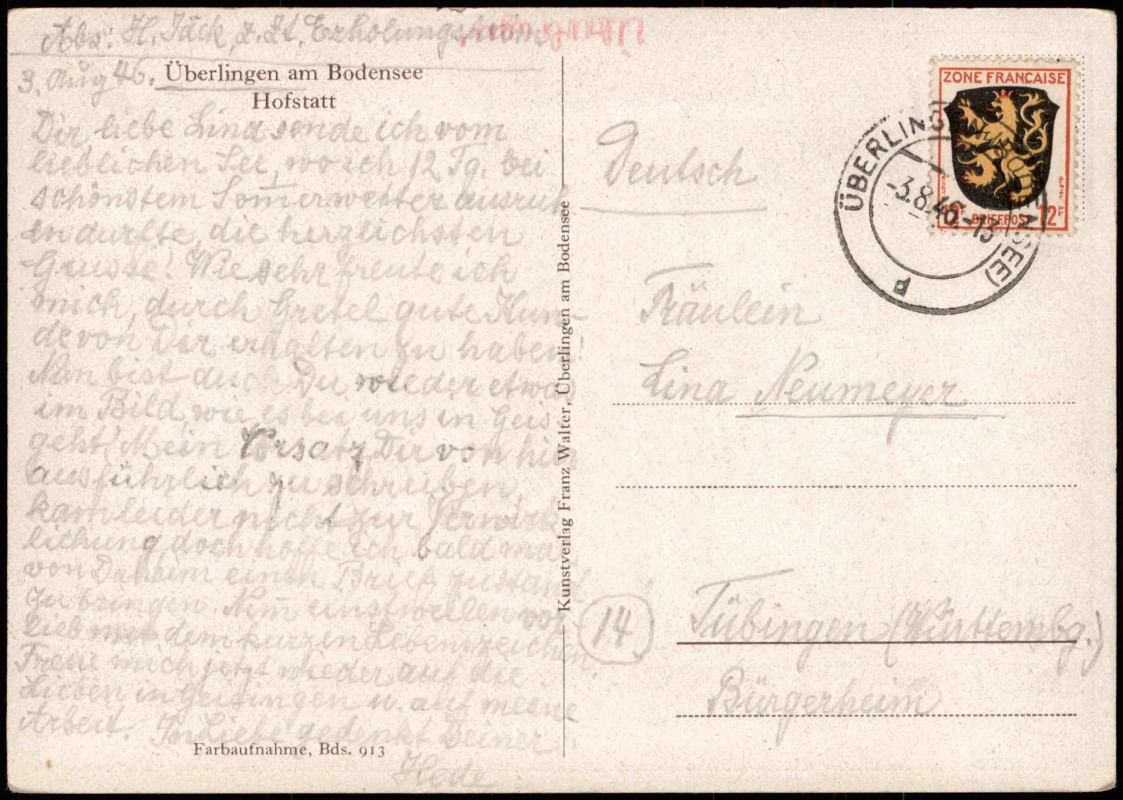 Abs: H. Jäck, z. Zt. Erholungsheim
3. Aug 46.
Überlingen am Bodensee
Hofstatt
Dir, liebe Lina sende ich vom
lieblichen See, wo ich 12 Tg. bei
schönstem Som̄erwetter ausruh
en durfte, die herzlichsten
Grüsse! Wie sehr freute ich
mich durch Gretel gute Kun-
de von Dir erhalten zu haben!
Nun bist auch Du wieder etwas
im Bild, wie es bei uns in Geis.
geht! Mein Vorsatz Dir von hier
ausführlich zu schreiben,
kam leider nicht zur Verwirk
lichung, doch hoffe ich bald mal
von Daheim einen Brief zustand
zu bringen. Nim̄ einstweilen vor-
lieb mit dem kurzen Lebenszeichen
Freue mich jetzt wieder auf die
Lieben in Geisingen u. auf meine
Arbeit. In Liebe gedenkt Deiner
Hede
Farbaufnahme, Bds. 913
Kunstverlag Franz Walter, Überlingen am Bodensee
Deutsch
ZONE FRANÇAISE
BRIEFPOST
12
ÜBERLINGEN (BODENSEE)
-3.8.46.-13
Fräulein
Lina Neumeyer
14
Tübingen (Württembg.)
Bürgerheim